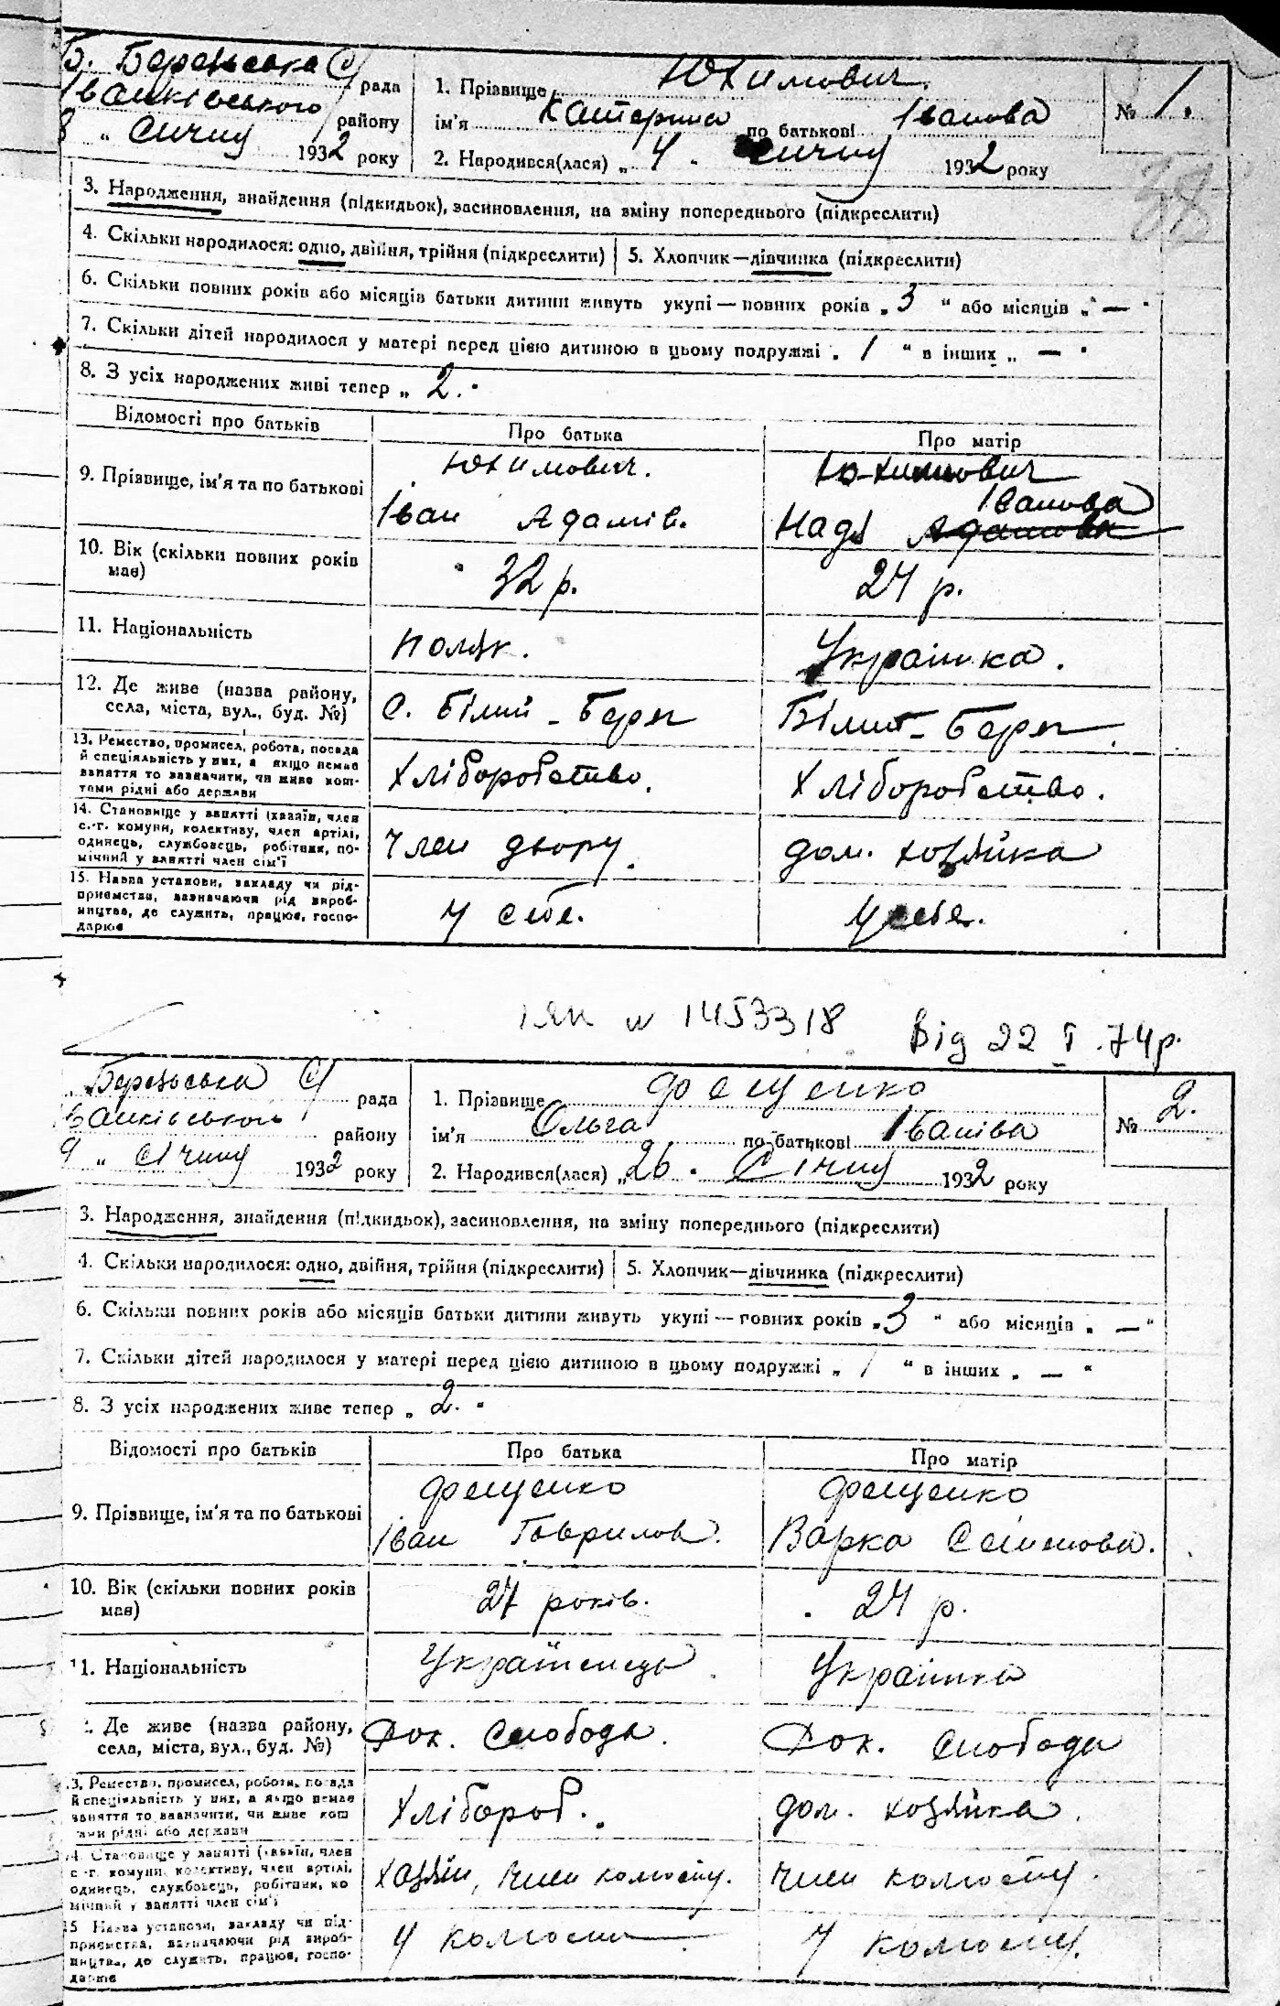 Б. Березька С/ рада
Іванківського району
8 „ Січня 1932 року
1. Прізвище Юхимович.
ім'я Катерина по батькові Іванова
2. Народився(лася) „ 4 . січня 1932 року
№ 1.
38
3. Народження, знайдення (підкидьок), засиновлення, на зміну попереднього (підкреслити)
4. Скільки народилося: одно, двійня, трійня (підкреслити) 5. Хлопчик—дівчинка (підкреслити)
6. Скільки повних років або місяців батьки дитини живуть укупі — повних років „ 3 “ або місяців „ — “
7. Скільки дітей народилося у матері перед цією дитиною в цьому подружжі „ 1 “ в інших „ — “
8. З усіх народжених живі тепер „ 2. “
Відомості про батьків Про батька Про матір
9. Прізвище, ім'я та по батькові
Юхимович.
Іван Адамів.
Юхимович
Іванова
Надя Адамова
10. Вік (скільки повних років має)
32 р.
24 р.
11. Національність
поляк.
Українка.
12. Де живе (назва району,
села, міста, вул., буд. №)
С. Білий - Берег
Білий - Берег
13. Ремество, промисел, робота, посада
й спеціяльність у них, а якщо немає
заняття то зазначити, чи живе кош-
тами рідні або держави
Хліборобство.
Хліборобство.
14. Становище у занятті (хазяїн, член
с.-г. комуни, колективу, член артілі,
одинець, службовець, робітник, по-
мічний у занятті член сім'ї
член двору.
дом. хозяйка
15. Назва установи, закладу чи під-
приємства, зазначаючи рід вироб-
ництва, де служить, працює, госпо-
дарює
У себе.
У себе.
N 1453318 Від 22 I .74р.
Березька С/ рада
Іванківського району
9 „ січня 1932 року
1. Прізвище Фещенко
ім'я Ольга по батькові Іванівна
2. Народився(лася) „ 26 . Січня 1932 року
№ 2.
3. Народження, знайдення (підкидьок), засиновлення, на зміну попереднього (підкреслити)
4. Скільки народилося: одно, двійня, трійня (підкреслити) 5. Хлопчик—дівчинка (підкреслити)
6. Скільки повних років або місяців батьки дитини живуть укупі — повних років „ 3 “ або місяців „ — “
7. Скільки дітей народилося у матері перед цією дитиною в цьому подружжі „ 1 “ в інших „ — “
8. З усіх народжених живе тепер „ 2. “
Відомості про батьків Про батька Про матір
9. Прізвище, ім'я та по батькові
Фещенко
Іван Гаврилов.
Фещенко
Варка Семенова.
10. Вік (скільки повних років
має)
27 років.
24 р.
11. Національність
Українець
Українка
Де живе (назва району,
села, міста, вул., буд. №)
Слобода.
Слобода
3. Ремество, промисел, робота, посада
й спеціяльність у них, а якщо немає
заняття то зазначити, чи живе кош
тами рідні або держави
Хлібороб.
дом. хозяйка.
4. Становище у занятті (хазяїн, член
с.-г. комуни, колективу, член артілі,
одинець, службовець, робітник, по
мічний у занятті член сім'ї
хозяїн, член колгоспу.
член колгоспу.
15 Назва установи, закладу чи під-
приємства, зазначаючи рід вироб-
ництва, де служить, працює, госпо-
дарює
У колгоспі
У колгоспу.